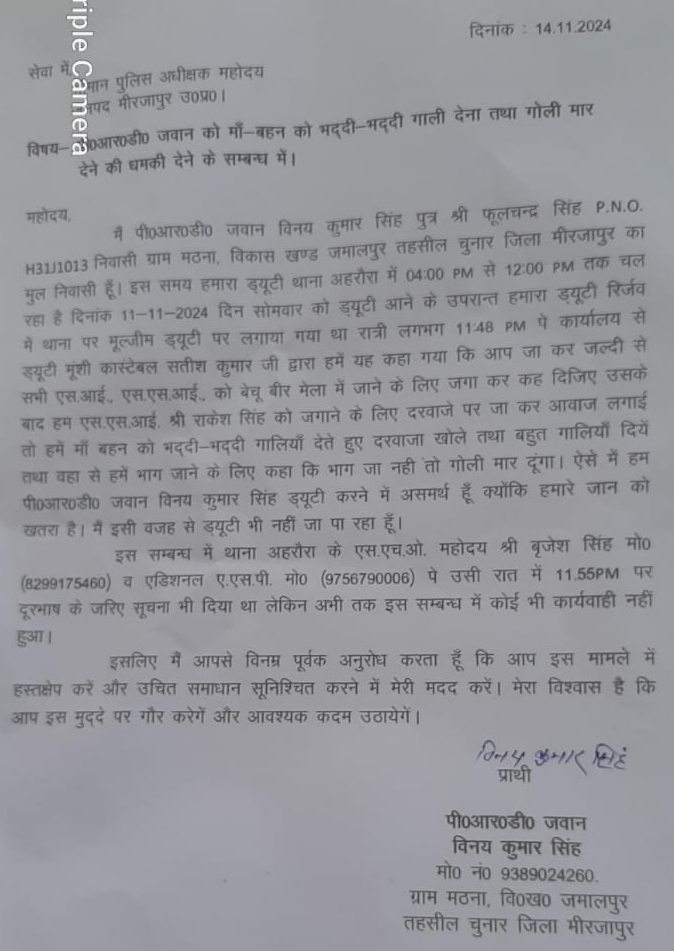 riple Camera
दिनांक : 14.11.2024
सेवा में,
मान पुलिस अधीक्षक महोदय
पद मीरजापुर उ०प्र०।
विषय– ०आर०डी० जवान को माँ–बहन को भद्दी–भद्दी गाली देना तथा गोली मार
देने की धमकी देने के सम्बन्ध में।
महोदय,
मै पी०आर०डी० जवान विनय कुमार सिंह पुत्र श्री फूलचन्द्र सिंह P.N.O.
H31J1013 निवासी ग्राम मठना, विकास खण्ड जमालपुर तहसील चुनार जिला मीरजापुर का
मुल निवासी हूँ। इस समय हमारा ड्यूटी थाना अहरौरा में 04:00 PM से 12:00 PM तक चल
रहा है दिनांक 11–11–2024 दिन सोमवार को ड्यूटी आने के उपरान्त हमारा ड्यूटी रिर्जव
में थाना पर मूल्जीम ड्यूटी पर लगाया गया था रात्री लगभग 11:48 PM पे कार्यालय से
ड्यूटी मूंशी कास्टेबल सतीश कुमार जी द्वारा हमें यह कहा गया कि आप जा कर जल्दी से
सभी एस.आई., एस.एस.आई., को बेचू बीर मेला में जाने के लिए जगा कर कह दिजिए उसके
बाद हम एस.एस.आई. श्री राकेश सिंह को जगाने के लिए दरवाजे पर जा कर आवाज लगाई
तो हमें माँ बहन को भद्दी–भद्दी गालियाँ देते हुए दरवाजा खोले तथा बहुत गालियाँ दियें
तथा वहा से हमें भाग जाने के लिए कहा कि भाग जा नही तो गोली मार दूंगा। ऐसे में हम
पी०आर०डी० जवान विनय कुमार सिंह ड्यूटी करने में असमर्थ हूँ क्योंकि हमारे जान को
खतरा है। मै इसी वजह से ड्यूटी भी नहीं जा पा रहा हूँ।
इस सम्बन्ध में थाना अहरौरा के एस.एच.ओ. महोदय श्री बृजेश सिंह मो०
(8299175460) व एडिशनल ए.एस.पी. मो० (9756790006) पे उसी रात में 11.55PM पर
दूरभाष के जरिए सूचना भी दिया था लेकिन अभी तक इस सम्बन्ध में कोई भी कार्यवाही नहीं
हुआ।
इसलिए मैं आपसे विनम्र पूर्वक अनुरोध करता हूँ कि आप इस मामले में
हस्तक्षेप करें और उचित समाधान सूनिश्चित करने में मेरी मदद करें। मेरा विश्वास है कि
आप इस मुद्दे पर गौर करेगें और आवश्यक कदम उठायेगें।
विनय कुमार सिंह
प्रार्थी
पी०आर०डी० जवान
विनय कुमार सिंह
मो० नं० 9389024260.
ग्राम मठना, वि०ख० जमालपुर
तहसील चुनार जिला मीरजापुर